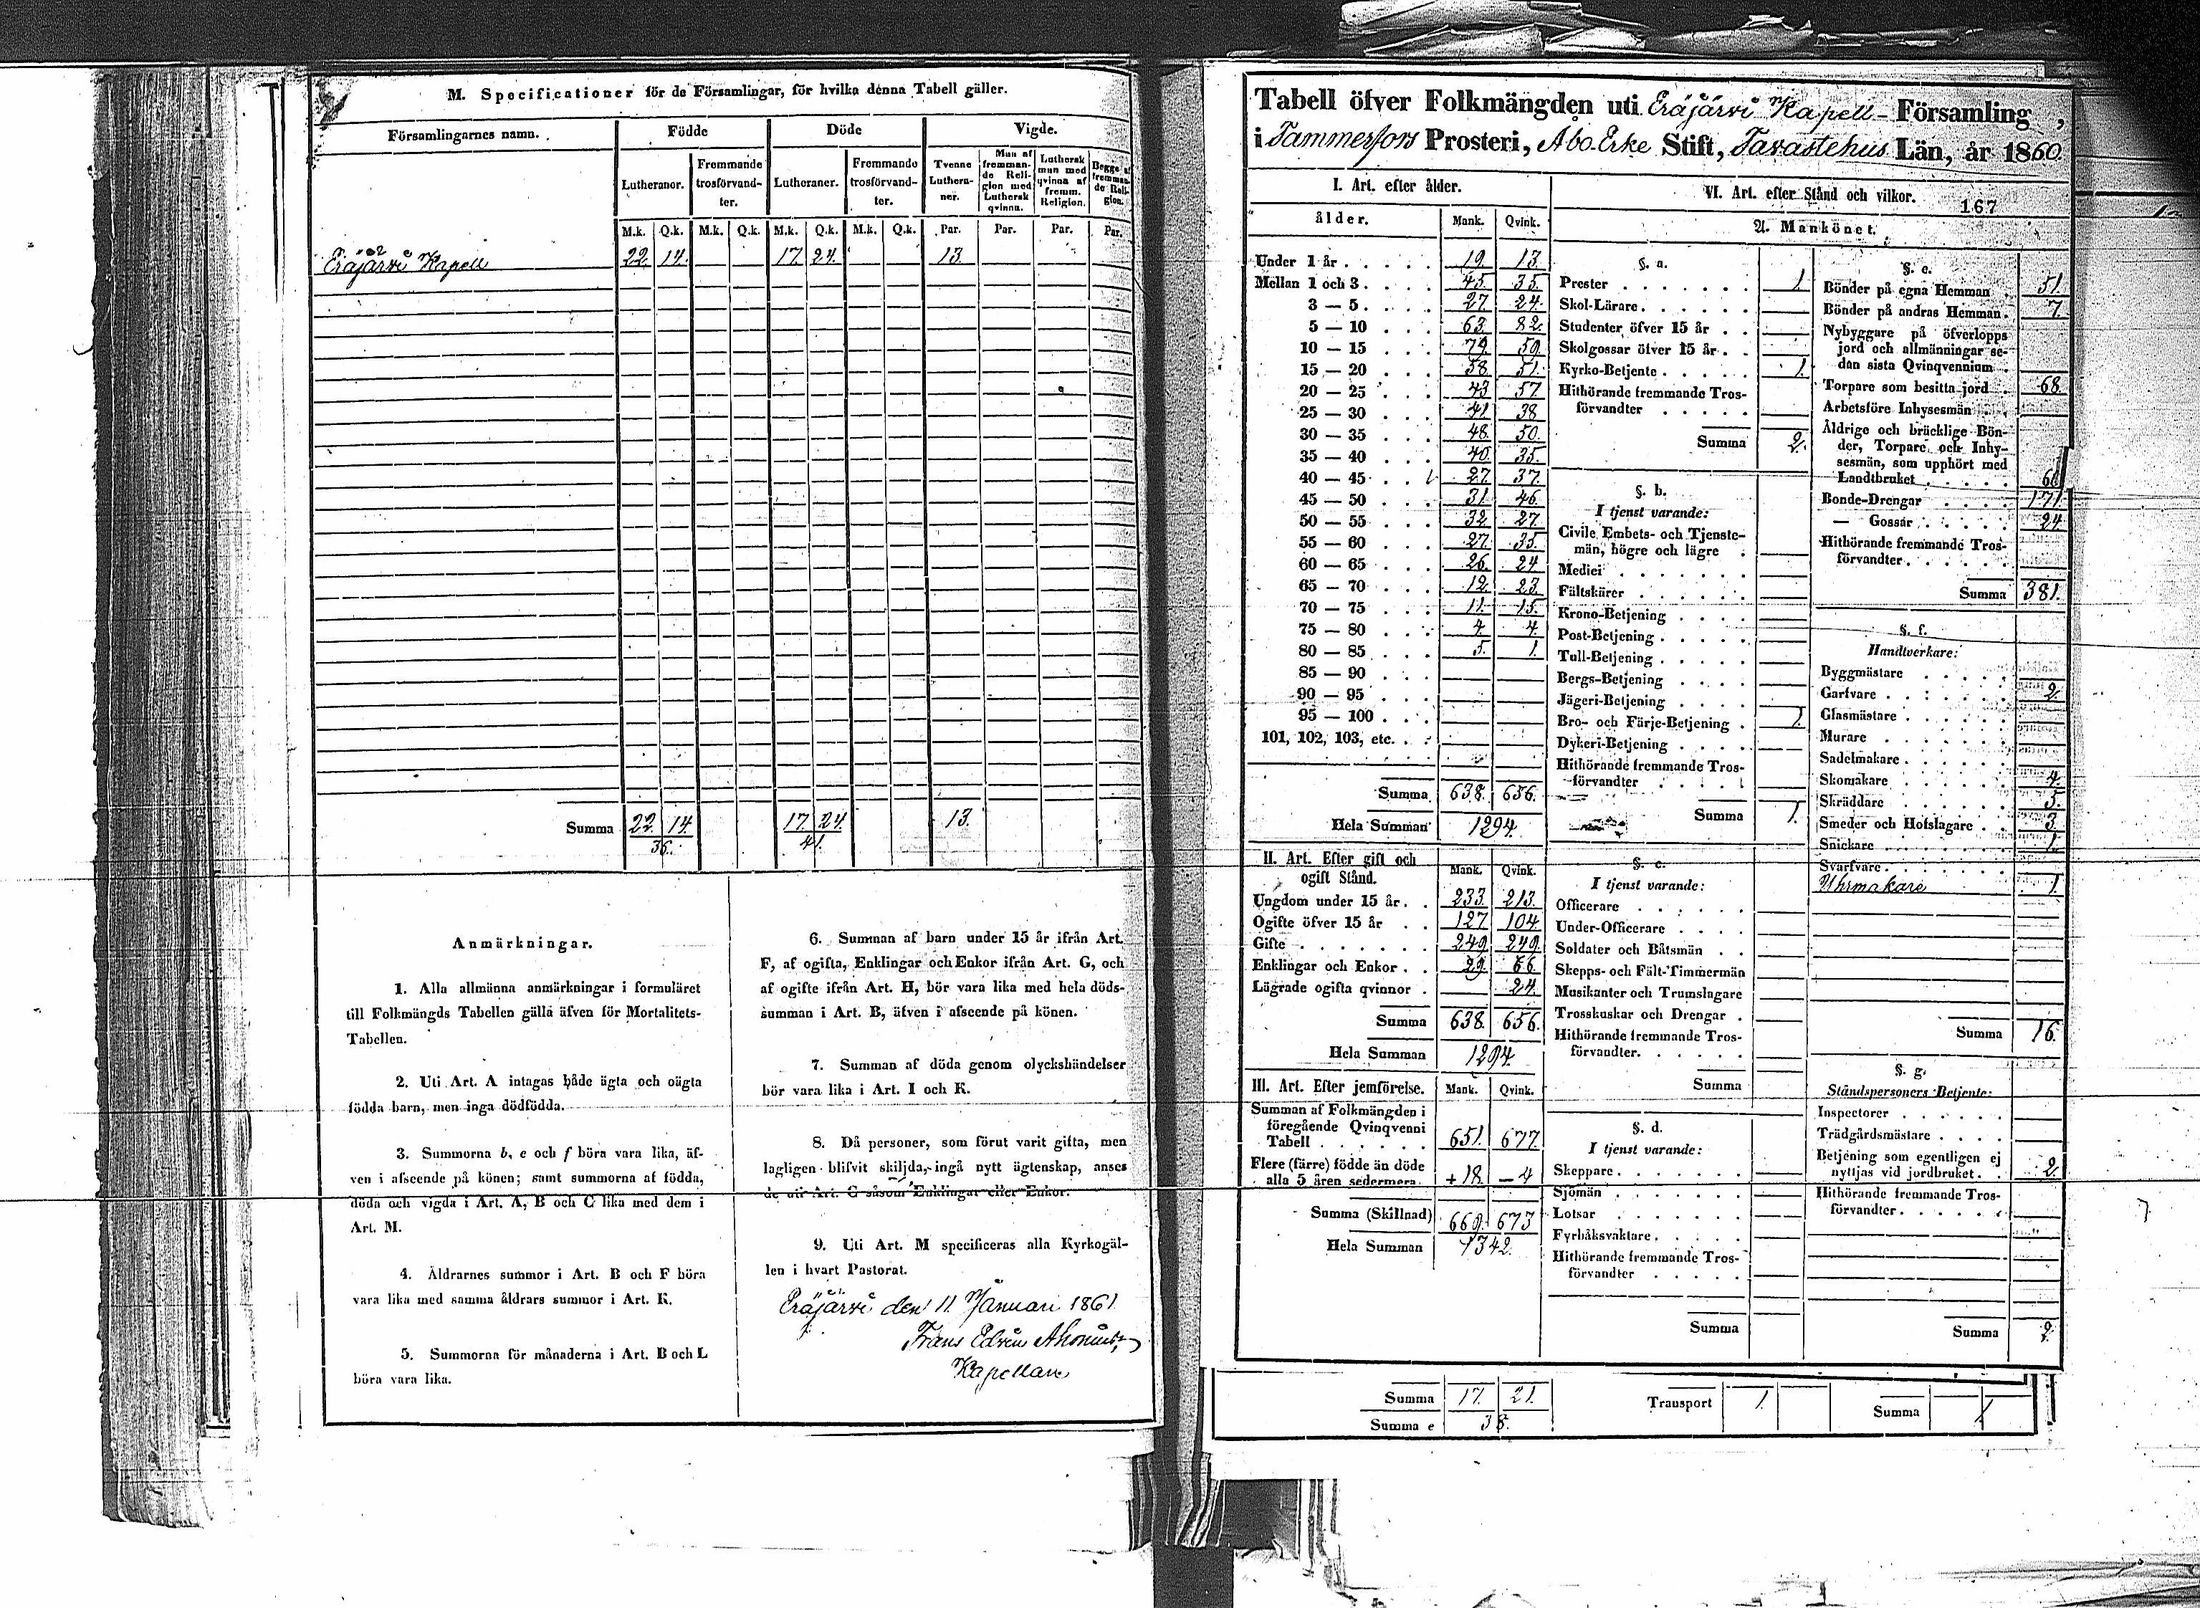 M. Specificationer för de Församlingar, för hvilka denna Tabell gäller.
Församlingarnes namn. Födde Döde Vigde.
Lutheraner. Fremmande trosförvandter. Lutheraner. Fremmande trosförvandter. Tvenne Lutheraner. Man af fremmande Religion med Luthersk qvinna. Luthersk man med qvinna af fremm. Religion. Begge af fremmande Religion.
M.k. Q.k. M.k. Q.k. M.k. Q.k. M.k. Q.k. Par. Par. Par. Par.
Eräjärvi Kapell 22. 14. 17. 24. 13.
Summa 22. 14. 17. 24. 13.
36. 41.
Anmärkningar.
1. Alla allmänna anmärkningar i formuläret
till Folkmängds Tabellen gälla äfven för Mortalitets-
Tabellen.
2. Uti Art. A intagas både ägta och oägta
födda barn, men inga dödfödda.
3. Summorna b, e och f böra vara lika, äf-
ven i afseende på könen; samt summorna af födda,
döda och vigda i Art. A, B och C lika med dem i
Art. M.
4. Åldrarnes summor i Art. B och F böra
vara lika med samma åldrars summor i Art. K.
5. Summorna för månaderna i Art. B och L
böra vara lika.
6. Summan af barn under 15 år ifrån Art.
F, af ogifta, Enklingar och Enkor ifrån Art. G, och
af ogifte ifrån Art. H, bör vara lika med hela döds-
summan i Art. B, äfven i afseende på könen.
7. Summan af döda genom olyckshändelser
bör vara lika i Art. I och K.
8. Då personer, som förut varit gifta, men
lagligen blifvit skiljda, ingå nytt ägtenskap, anses
de uti Art. C såsom Enklingar eller Enkor.
9. Uti Art. M specificeras alla Kyrkogäl-
len i hvart Pastorat.
Eräjärvi den 11 Januari 1861.
Frans Edvin
Kapellan
Tabell öfver Folkmängden uti Eräjärvi Kapell-Församling,
i Tammerfors Prosteri, Åbo Erke Stift, Tavastehus Län, år 1860.
167
I. Art. efter ålder.
ålder. Mank. Qvink.
Under 1 år 19. 13.
Mellan 1 och 3 45. 35.
3 — 5 27. 24.
5 — 10 63. 82.
10 — 15 79. 59.
15 — 20 58. 51.
20 — 25 43. 57.
25 — 30 41. 38
30 — 35 48. 50.
35 — 40 40. 35.
40 — 45 27. 37.
45 — 50 31. 46.
50 — 55 32. 27.
55 — 60 27. 35.
60 — 65 26. 24
65 — 70 12. 23.
70 — 75 11. 15.
75 — 80 4. 4.
80 — 85 5. 1.
85 — 90
90 — 95
95 — 100
101, 102, 103, etc.
Summa 638. 656.
Hela Summan 1294.
II. Art. Efter gift och
ogift Stånd. Mank. Qvink.
Ungdom under 15 år 233. 213.
Ogifte öfver 15 år 127 104.
Gifte 249. 249.
Enklingar och Enkor 29. 66.
Lägrade ogifta qvinnor 24.
Summa 638. 656.
Hela Summan 1294.
III. Art. Efter jemförelse. Mank. Qvink.
Summan af Folkmängden i
föregående Qvinqvenni
Tabell 651. 677.
Flere (färre) födde än döde
alla 5 åren sedermera +18. —4
Summa (Skillnad) 669. 673
Hela Summan 1342.
VI. Art. efter Stånd och vilkor.
A. Mankönet.
§. a.
Prester 1.
Skol-Lärare
Studenter öfver 15 år
Skolgossar öfver 15 år
Kyrko-Betjente 1.
Hithörande fremmande Tros-
förvandter
Summa 2.
§. b.
I tjenst varande:
Civile Embets- och Tjenste-
män, högre och lägre
Medici
Fältskärer
Krono-Betjening
Post-Betjening
Tull-Betjening
Bergs-Betjening
Jägeri-Betjening
Bro- och Färje-Betjening 1.
Dykeri-Betjening
Hithörande fremmande Tros-
förvandter
Summa 1.
§. c.
I tjenst varande:
Officerare
Under-Officerare
Soldater och Båtsmän
Skepps- och Fält-Timmermän
Musikanter och Trumslagare
Trosskuskar och Drengar
Hithörande fremmande Tros-
förvandter
Summa
§. d.
I tjenst varande:
Skeppare
Sjömän
Lotsar
Fyrbåksvaktare
Hithörande fremmande Tros-
förvandter
Summa
§. e.
Bönder på egna Hemman 51.
Bönder på andras Hemman 7.
Nybyggare på öfverlopps
jord och allmänningar se-
dan sista Qvinqvennium
Torpare som besitta jord 68
Arbetsföre Inhysesmän
Åldrige och bräcklige Bön-
der, Torpare och Inhy-
sesmän, som upphört med
Landtbruket 60
Bonde-Drengar 171.
— Gossar 24
Hithörande fremmande Tros-
förvandter
Summa 381.
§. f.
Handtverkare:
Byggmästare
Garfvare 2.
Glasmästare
Murare
Sadelmakare
Skomakare 4.
Skräddare 5.
Smeder och Hofslagare 3.
Snickare 1.
Svarfvare
Uhrmakare 1.
Summa 16.
§. g.
Ståndspersoners Betjente:
Inspectorer
Trädgårdsmästare
Betjening som egentligen ej
nyttjas vid jordbruket 2.
Hithörande fremmande Tros-
förvandter
Summa 2.
Summa 17. 21. Transport 1. Summa 1
Summa e 38.